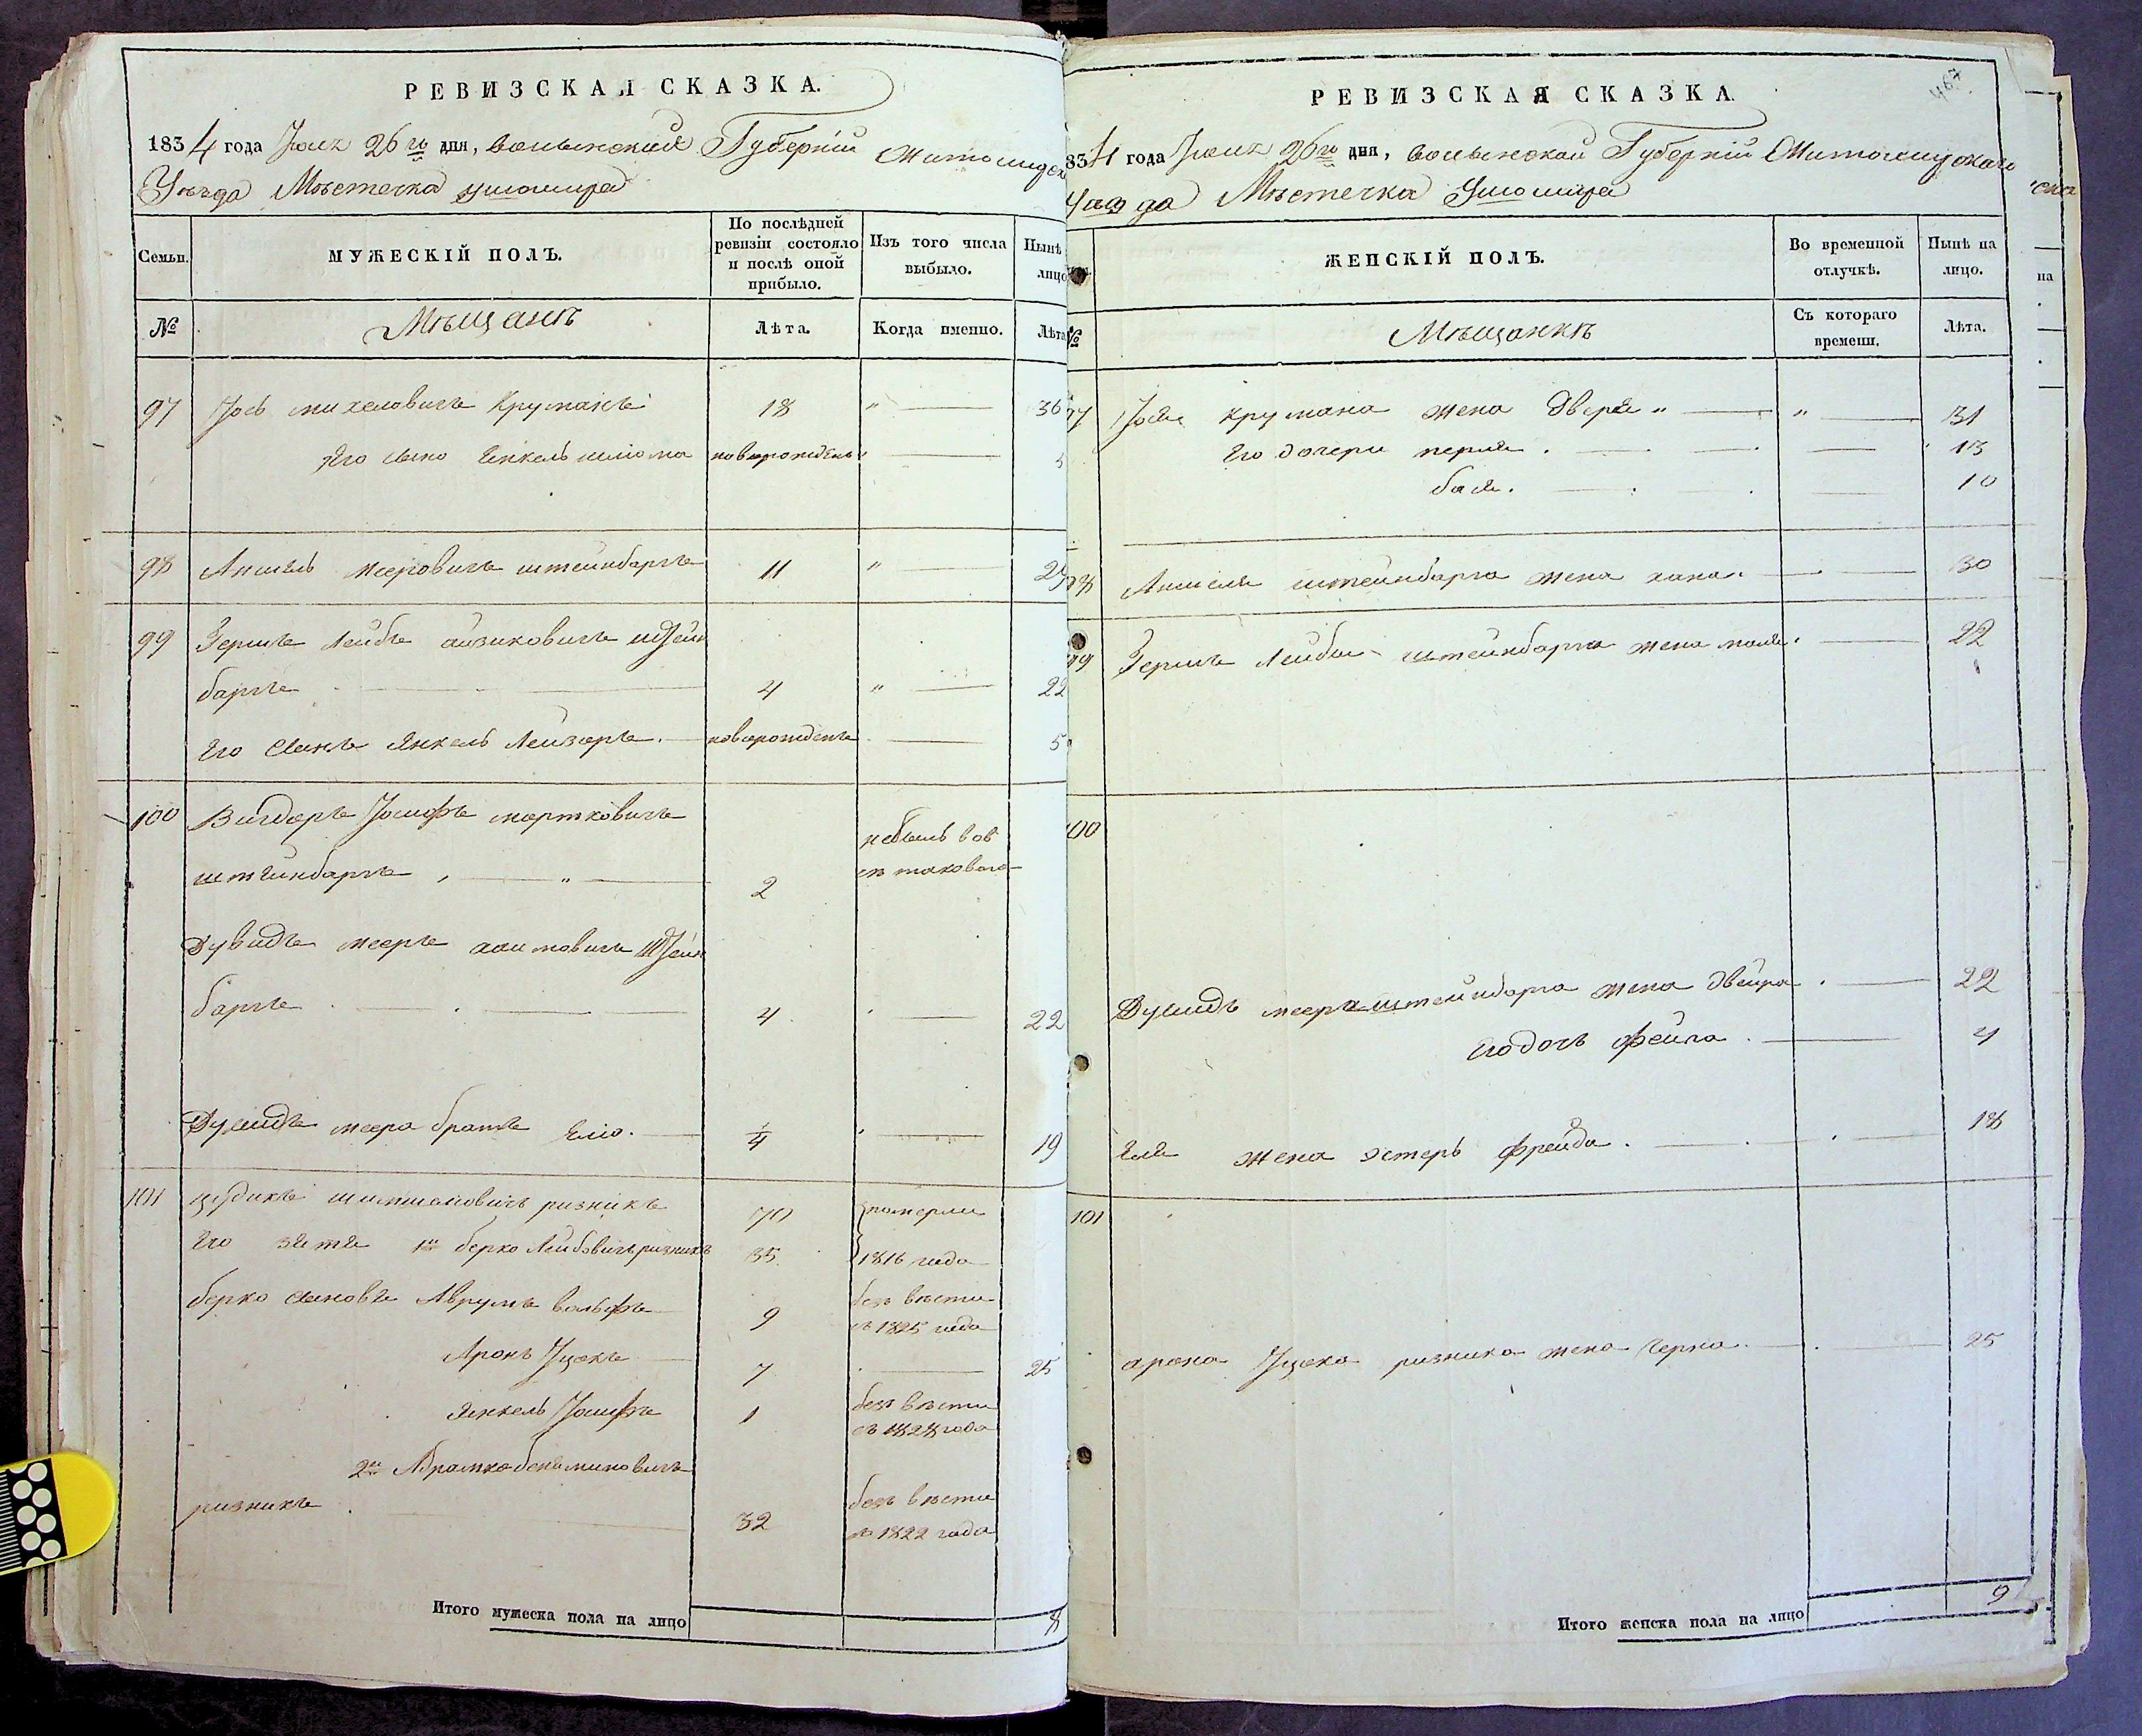 РЕВИЗСКАЯ СКАЗКА.
1834 года Юня 26го дня, волынской Губерніи Житомирск
Уѣзда Мѣстечка Ушомира
Семьи.
МУЖЕСКІЙ ПОЛЪ.
По послѣдней ревизіи состояло и послѣ оной прибыло.
Изъ того числа выбыло.
Нынѣ лицо
№
Мѣщанъ
Лѣта.
Когда именно.
Лѣта
97 Іось михеловичъ Круманъ 18 " 36
Его сынъ Янкель шліома новорожденъ " 5
98 Аншель мееровичъ штейнбаргъ 11 " 29
99 Гершъ Лейбъ айзиковичъ штейн
баргъ 4 " 22
Его Сынъ Янкель Лейзаръ. новорожденъ 5
100 Вигдоръ Іосифъ мортковичъ
штейнбаргъ 2 небылъ вов
съ таковаго
Дувидъ мееръ хаимовичъ Штейн
баргъ 4 22
Дувидъ меера братъ Еліо. 1/4 19
101 цудикъ шиmшоновичъ ризникъ 70 померли
Его зятя 1й берко Лейбовичъ ризникъ 35 1816 года
берко сыновья Аврумъ вольфъ 9 безъ вѣсти
съ 1825 года
Аронъ Іцекъ 7 25
Янкель Іосифъ 1 безъ вѣсти
съ 1828 года
2й Абрамко бениминовичъ
ризникъ 32 безъ вѣсти
съ 1822 года
Итого мужеска пола на лицо 8
467
РЕВИЗСКАЯ СКАЗКА.
834 года Юня 26го дня, волынской Губерніи Житомирскаго
Уѣзда Мѣстечка Ушомира
ЖЕНСКІЙ ПОЛЪ.
Во временной отлучкѣ.
Нынѣ на лицо.
№
Мѣщанкъ
Съ котораго времени.
Лѣта.
97 Іося крумана жена двера " " 31
Его дочери перля . 13
бася . 10
98 Аншеля штейнбарга жена хана. 30
99 Гершъ Лейбы штейнбарга жена маля. 22
100
Дувидъ меера штейнбарга жена двейра . 22
Его дочь фейга . 4
Еля жена эстеръ фрейда . 18
101
арона Іцека ризника жена черна. 25
Итого женска пола на лицо 9